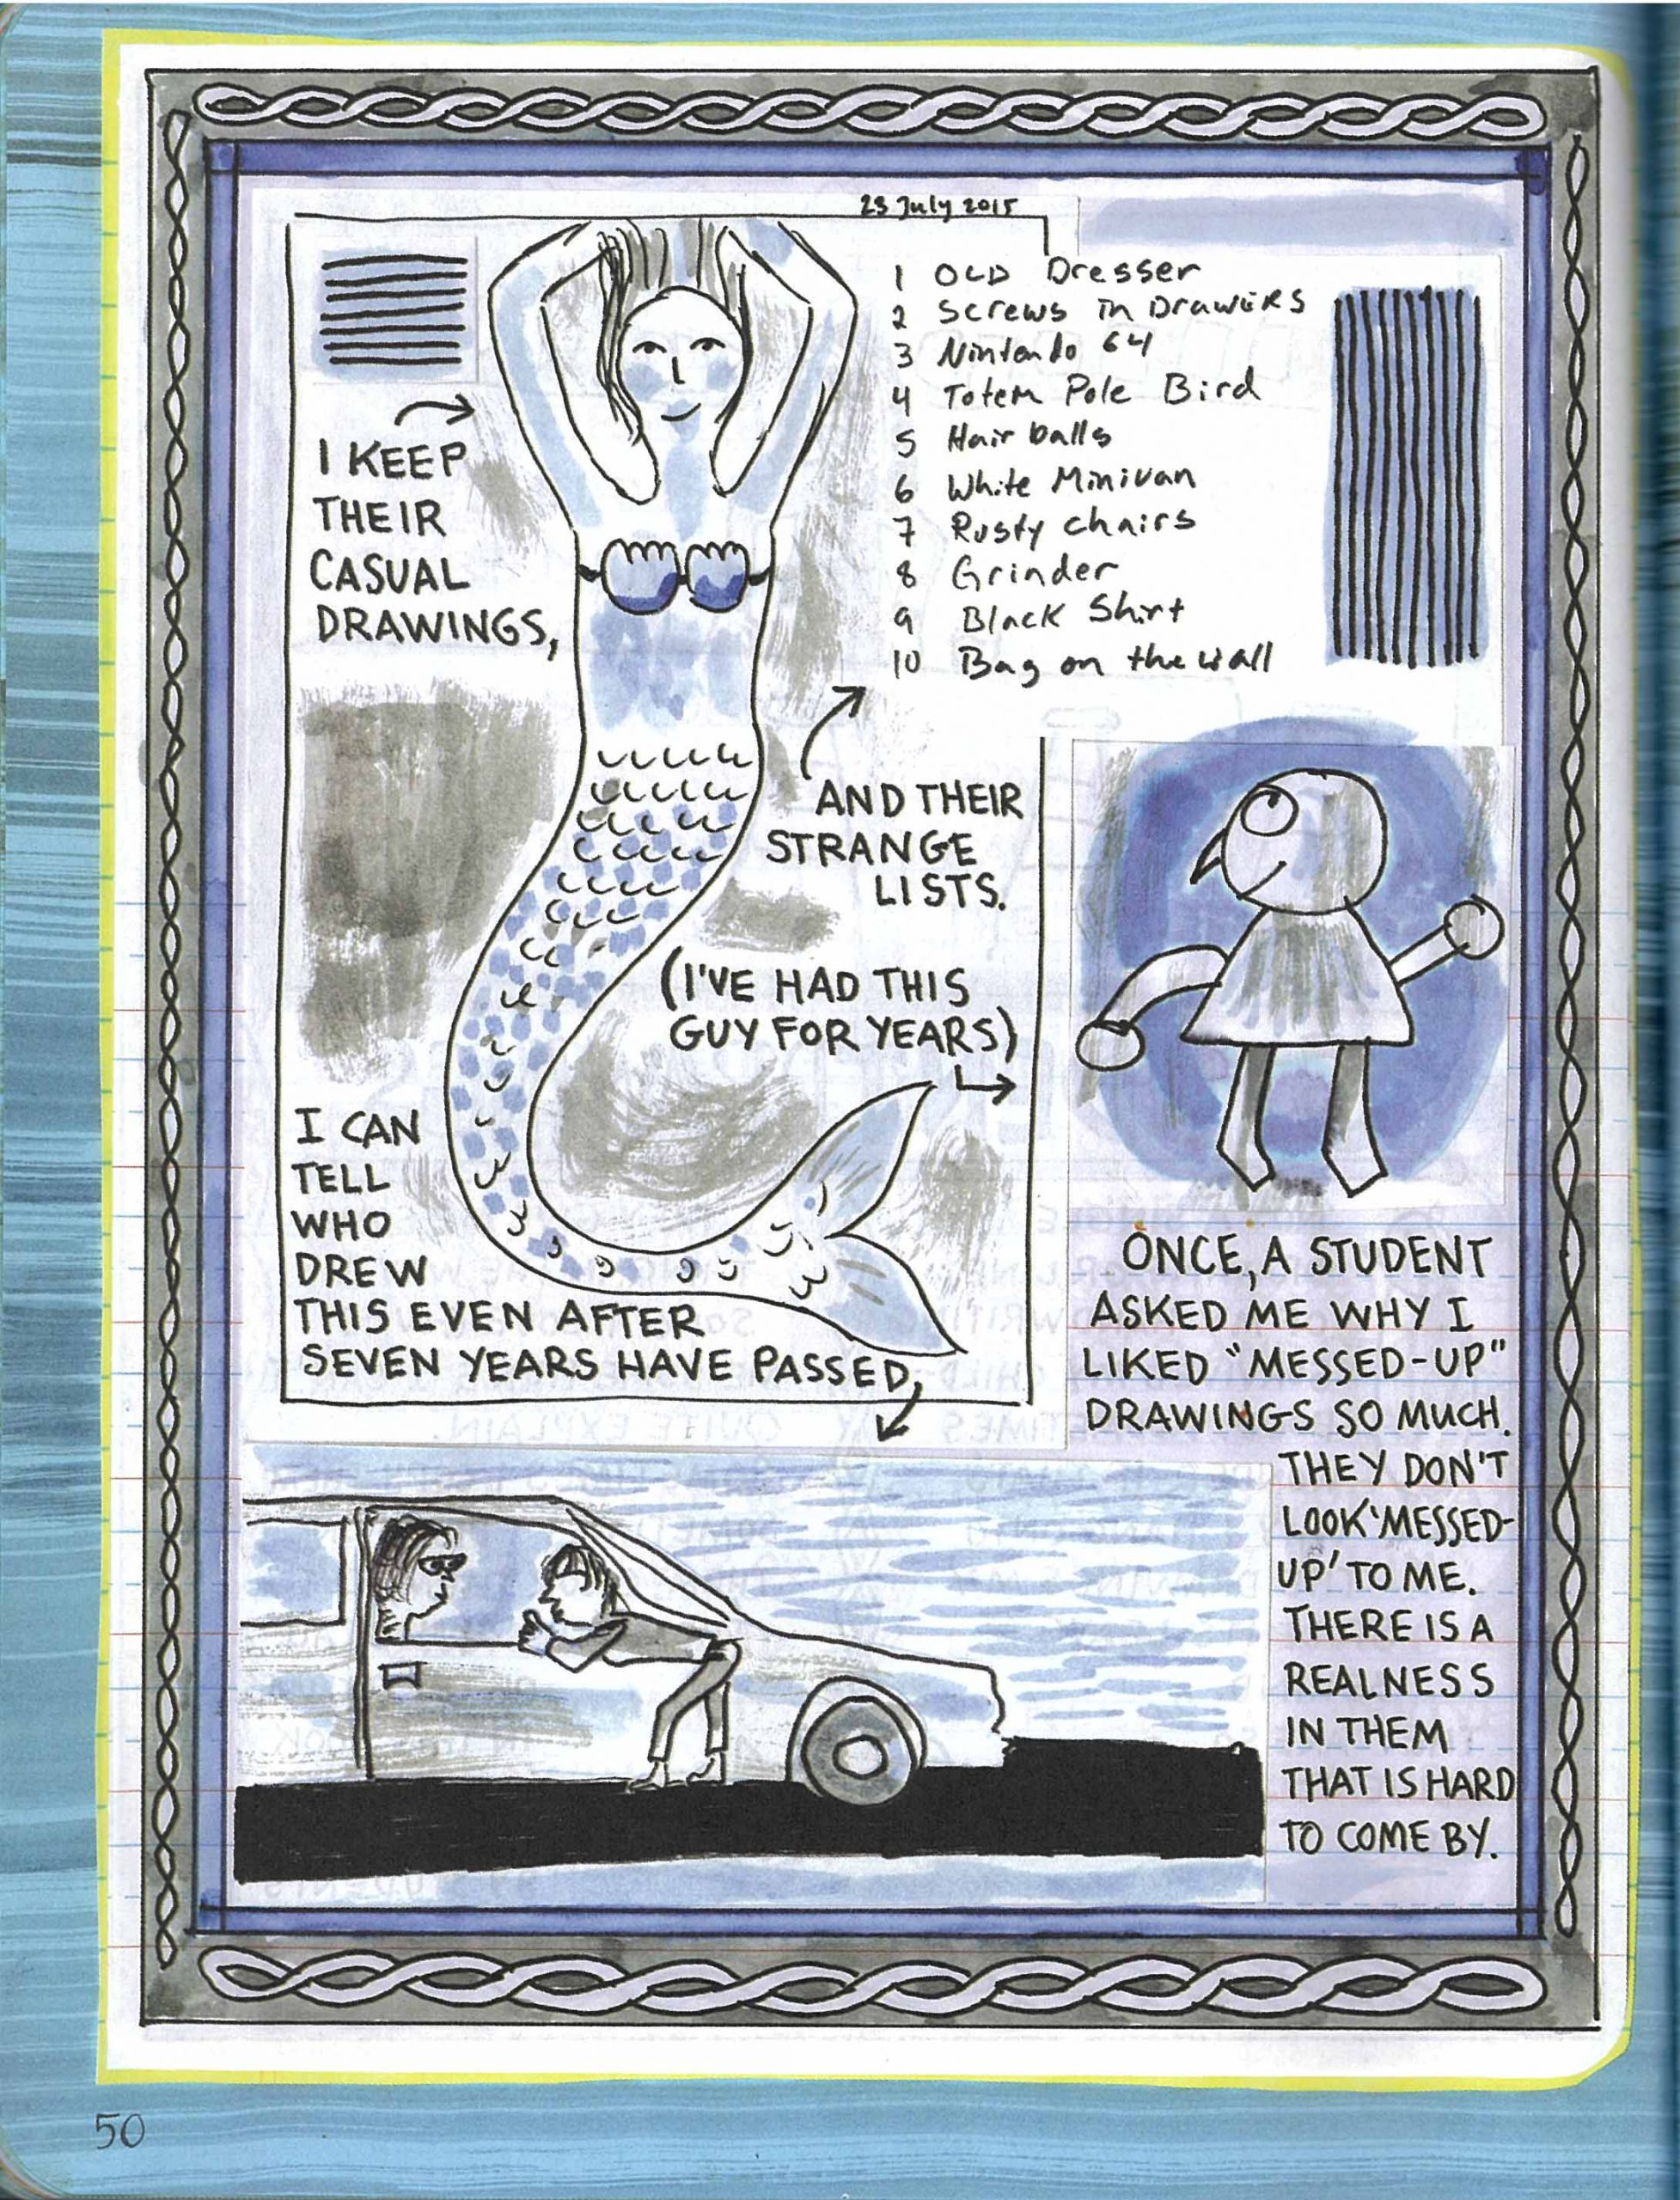 23 July 2015
I KEEP
THEIR
CASUAL
DRAWINGS,
1 OLD Dresser
2 Screws in Drawers
3 Nintendo 64
4 Totem Pole Bird
5 Hair balls
6 White Minivan
7 Rusty chairs
8 Grinder
9 Black Shirt
10 Bag on the wall
AND THEIR
STRANGE
LISTS.
(I'VE HAD THIS
GUY FOR YEARS)
I CAN
TELL
WHO
DREW
THIS EVEN AFTER
SEVEN YEARS HAVE PASSED,
ONCE, A STUDENT
ASKED ME WHY I
LIKED "MESSED-UP"
DRAWINGS SO MUCH.
THEY DON'T
LOOK 'MESSED-
UP' TO ME.
THERE IS A
REALNESS
IN THEM
THAT IS HARD
TO COME BY.
50